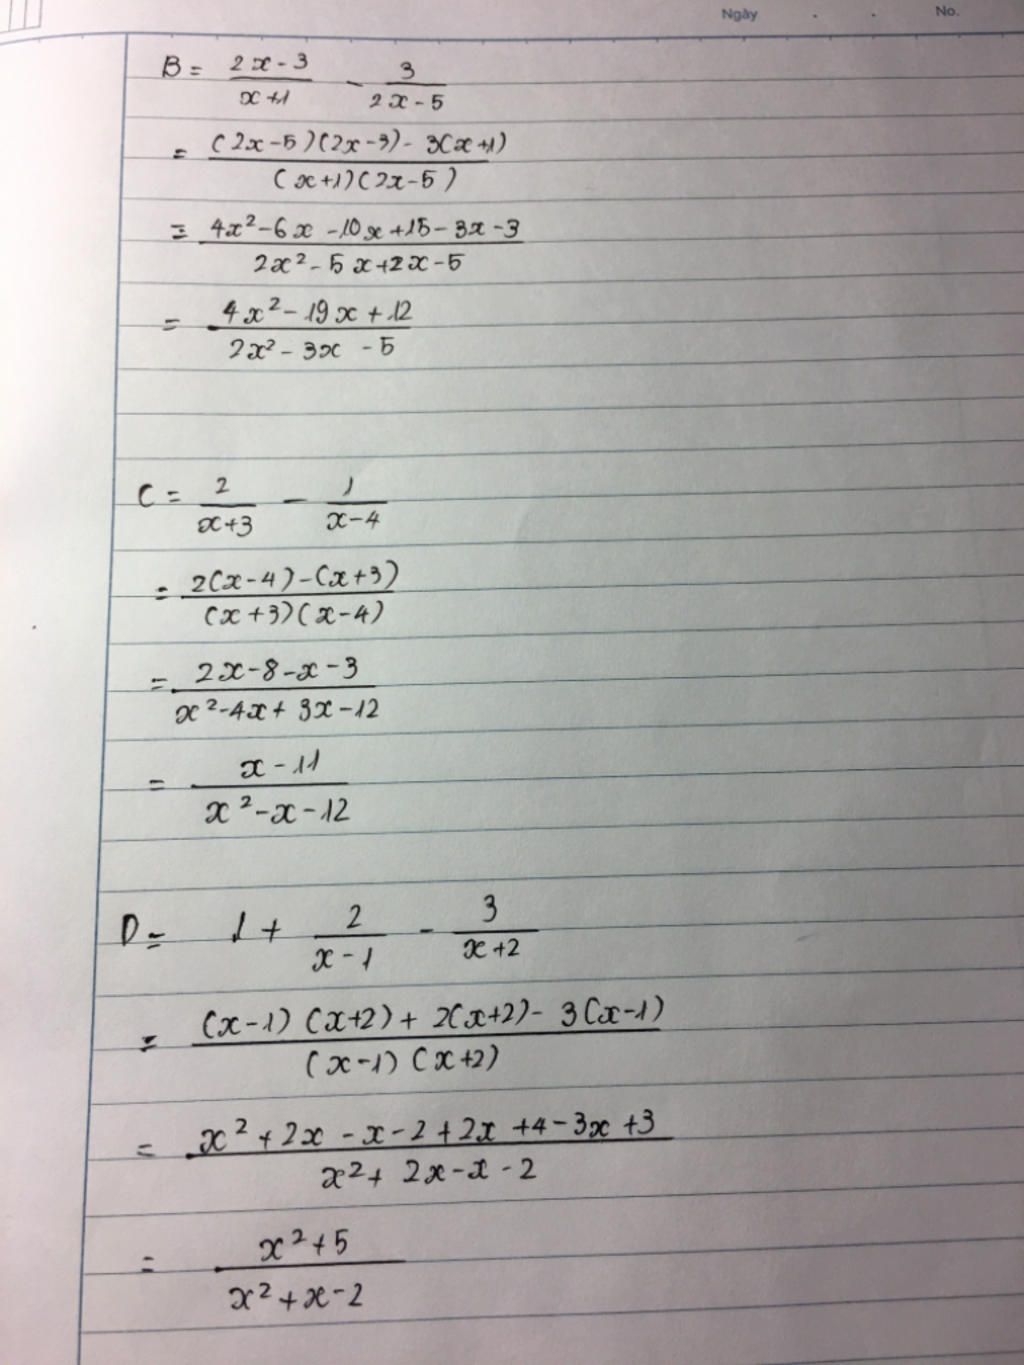 Ngày . . No.
B = (2x - 3)/(x+1) - 3/(2x - 5)
= ((2x-5)(2x-3) - 3(x+1))/((x+1)(2x-5))
= (4x² - 6x - 10x + 15 - 3x - 3)/(2x² - 5x + 2x - 5)
= (4x² - 19x + 12)/(2x² - 3x - 5)
C = 2/(x+3) - 1/(x-4)
= (2(x-4) - (x+3))/((x+3)(x-4))
= (2x - 8 - x - 3)/(x² - 4x + 3x - 12)
= (x - 11)/(x² - x - 12)
D = 1 + 2/(x - 1) - 3/(x+2)
= ((x-1)(x+2) + 2(x+2) - 3(x-1))/((x-1)(x+2))
= (x² + 2x - x - 2 + 2x + 4 - 3x + 3)/(x² + 2x - x - 2)
= (x² + 5)/(x² + x - 2)